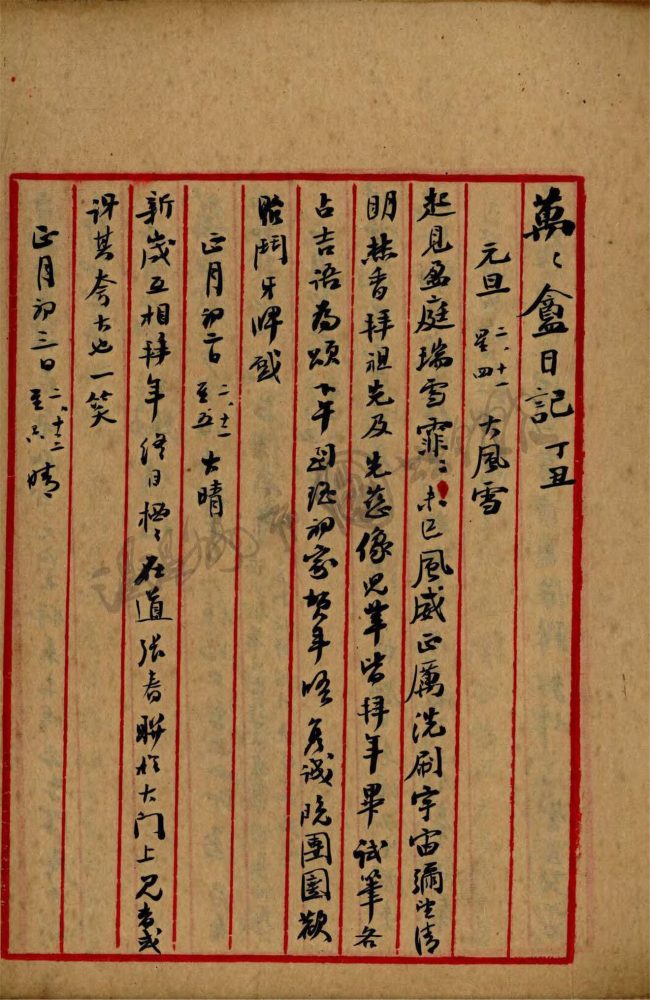 萬〻盦日記 丁丑
元旦 二、十一 星四 大風雪
起見盈庭瑞雪霏〻未已風威正厲洗刷宇宙彌望清
明焚香拜祖先及先慈像兒輩皆拜年畢試筆各
占吉語為頌下午初家賀年晤誠院團圞歡
貽鬥牙牌戲
正月初二日 二、十二 星五 大晴
新歲互相拜年終日在道張春聯於大門上見者或
訝其夸大也一笑
正月初三日 二、十三 星六 晴